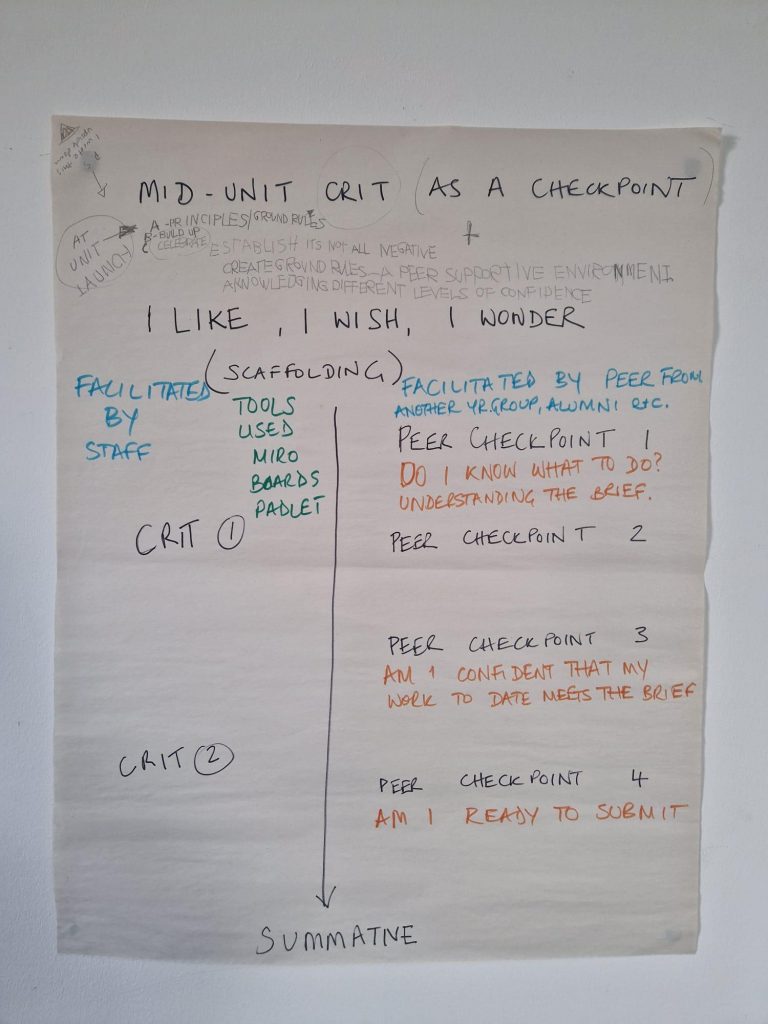 MID-UNIT CRIT (AS A CHECKPOINT)
+
AT UNIT LAUNCH
A - PRINCIPLES/GROUND RULES
B - BUILD UP
C CELEBRATE
ESTABLISH ITS NOT ALL NEGATIVE
CREATE GROUND RULES - A PEER SUPPORTIVE ENVIRONMENT
AKNOWLEDGING DIFFERENT LEVELS OF CONFIDENCE
I LIKE, I WISH, I WONDER
(SCAFFOLDING)
FACILITATED
BY
STAFF
TOOLS
USED
MIRO
BOARDS
PADLET
CRIT 1
CRIT 2
FACILITATED BY PEER FROM
ANOTHER YR. GROUP, ALUMNI etc.
PEER CHECKPOINT 1
DO I KNOW WHAT TO DO?
UNDERSTANDING THE BRIEF.
PEER CHECKPOINT 2
PEER CHECKPOINT 3
AM I CONFIDENT THAT MY
WORK TO DATE MEETS THE BRIEF
PEER CHECKPOINT 4
AM I READY TO SUBMIT
SUMMATIVE